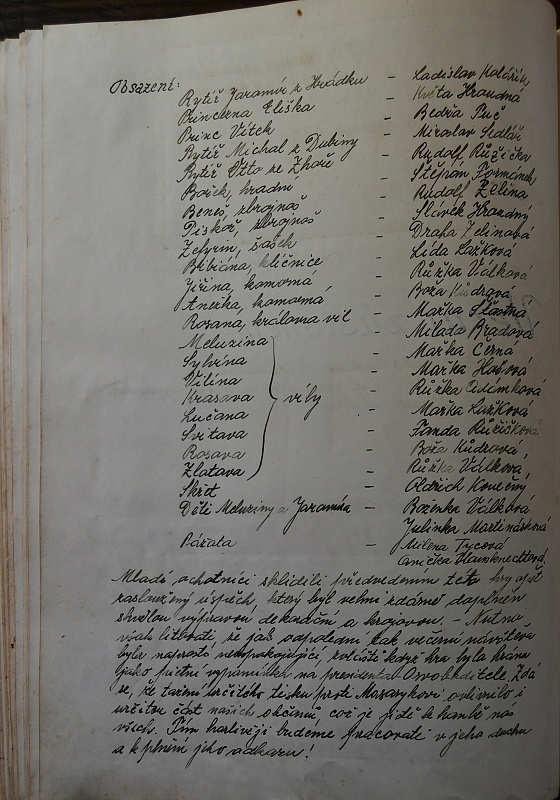 Obsazení:
Rytíř Jaromír z Hrádku – Ladislav Kolářík
Princezna Eliška – Květa Hraudná
Princ Vítek – Bedřa Puč
Rytíř Michal z Dubiny – Miroslav Sedlář
Rytíř Oto ze Zhoře – Rudolf Růžička
Bořek, hradní – Štěpán Formánek
Beneš, zbrojnoš – Rudolf Želina
Piskoř, zbrojnoš – Slávek Hraudný
Zefyrin, šašek – Draha Želinová
Bibiána, klíčnice – Lída Lažková
Jiřina, komorná – Růžka Válková
Anežka, komorná – Boža Kudrová
Rosana, královna víl – Mařka Šťastná
Meluzina – Milada Bradová
Sylvína – Mařka Černá
Vilína – Mařka Hašová
Krasava – Růžka Adámková
Lučana víly – Mařka Lažková
Svitava – Fanda Růžičková
Rosava – Boža Kudrová
Zlatava – Růžka Válková
Skřet – Oldřich Konečný
Děti Meluziny a Jaromíra – Boženka Válková
Julinka Martinásková
Pážata – Milena Tycová
Anička
Mladí ochotníci sklidili předvedením této hry opět
zasloužený úspěch, který byl velmi zdárně doplněn
skvělou výpravou, dekorační a krojovou. – Nutno
však litovati, že jak odpolední tak večerní návštěva
byla naprosto neuspokojující, zvláště když hra byla hrána
jako pietní vzpomínka na presidenta Osvoboditele. Zdá
se, že tažení určitého tisku proti Masarykovi ovlivnilo i
určitou část našich občanů, což je jistě k hanbě nás
všech. Tím horlivěji budeme pracovati v jeho duchu
a k plnění jeho odkazu!